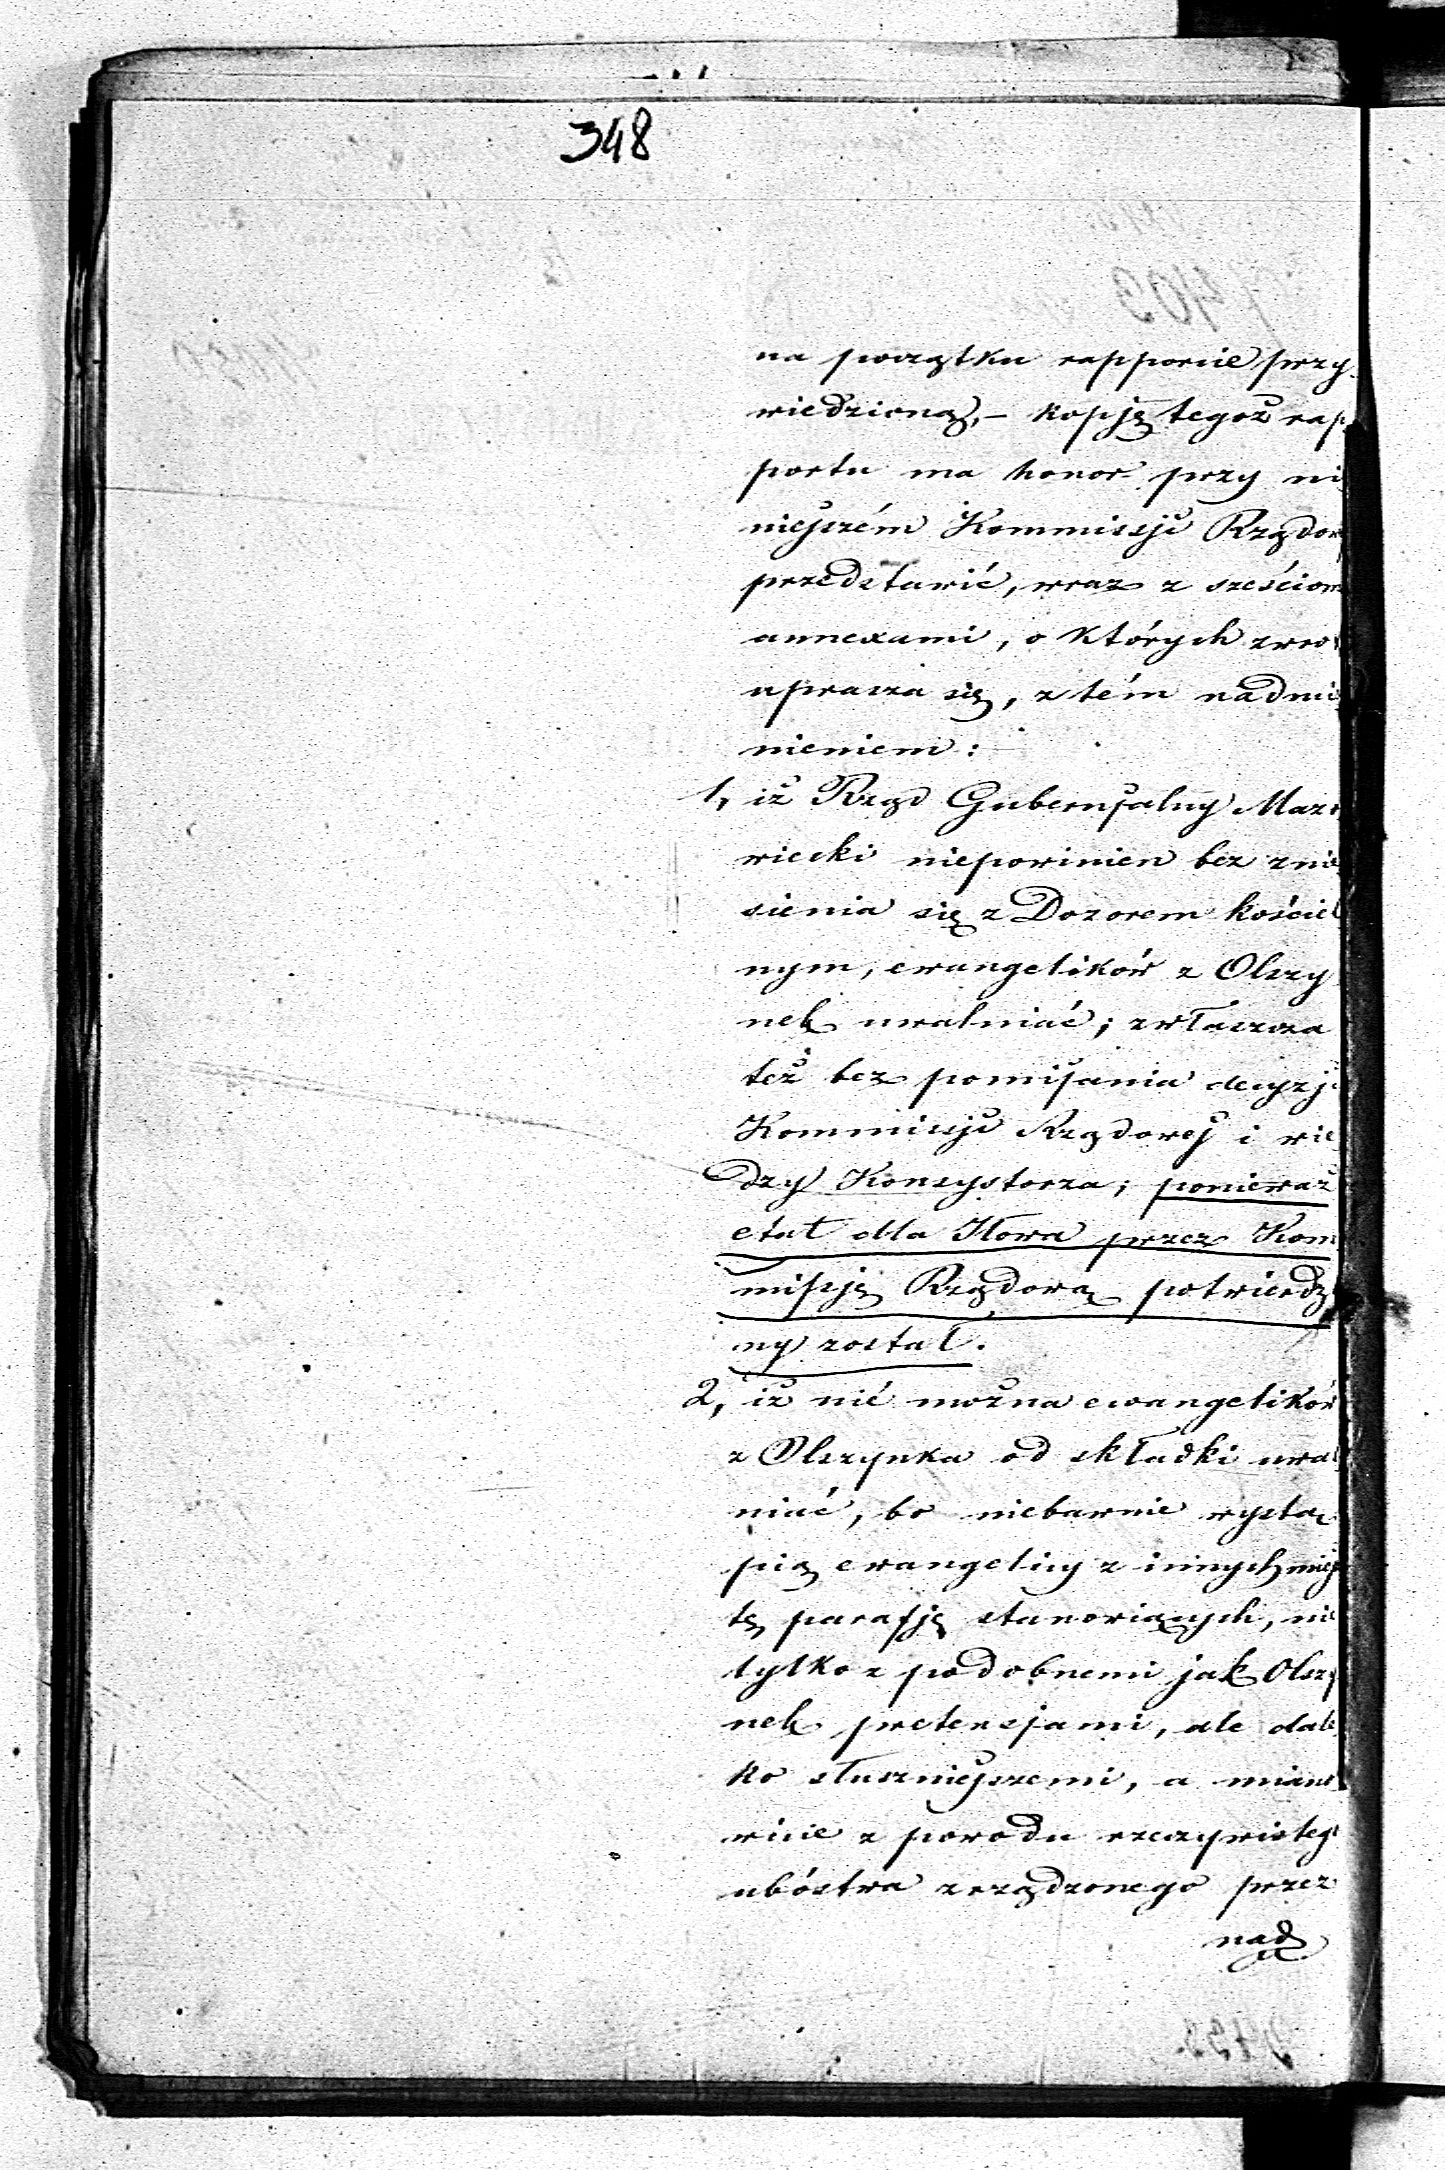 348
na początku rapporcie przy-
wiedzioną,- kopję tegoż rap
portu ma honor przy ni
niejszém Kommissji Rządow
przedstawić, wraz z sześcioma
annexami, o których zwro
uprasza się, z tém nadmi
nieniem:
1, iż Rząd Gubernjalny Mazo
wiecki niepowinien bez znie
sienia się z Dozorem kościel
nym, ewangelików z Olszy
nek uwalniać; zwłaszcza
też bez pomijania decyzji
Kommissji Rządowej i wie
dzy Konsystorza; ponieważ
etat dla Iłowa przez Kom
missję Rządową potwierdzo
ny został.
2, iż nié można ewangelików
z Olszynka od składki uwal
niać, bo niebawnie wystą
pią ewangelicy z innych miejsc
tę parafję stanowiących, nie
tylko z podobnemi jak Olszy
nek pretensjami, ale dale
ko słuszniejszemi, a miano
wicie z powodu rzeczywistego
ubóstwa zrządzonego przez
nad